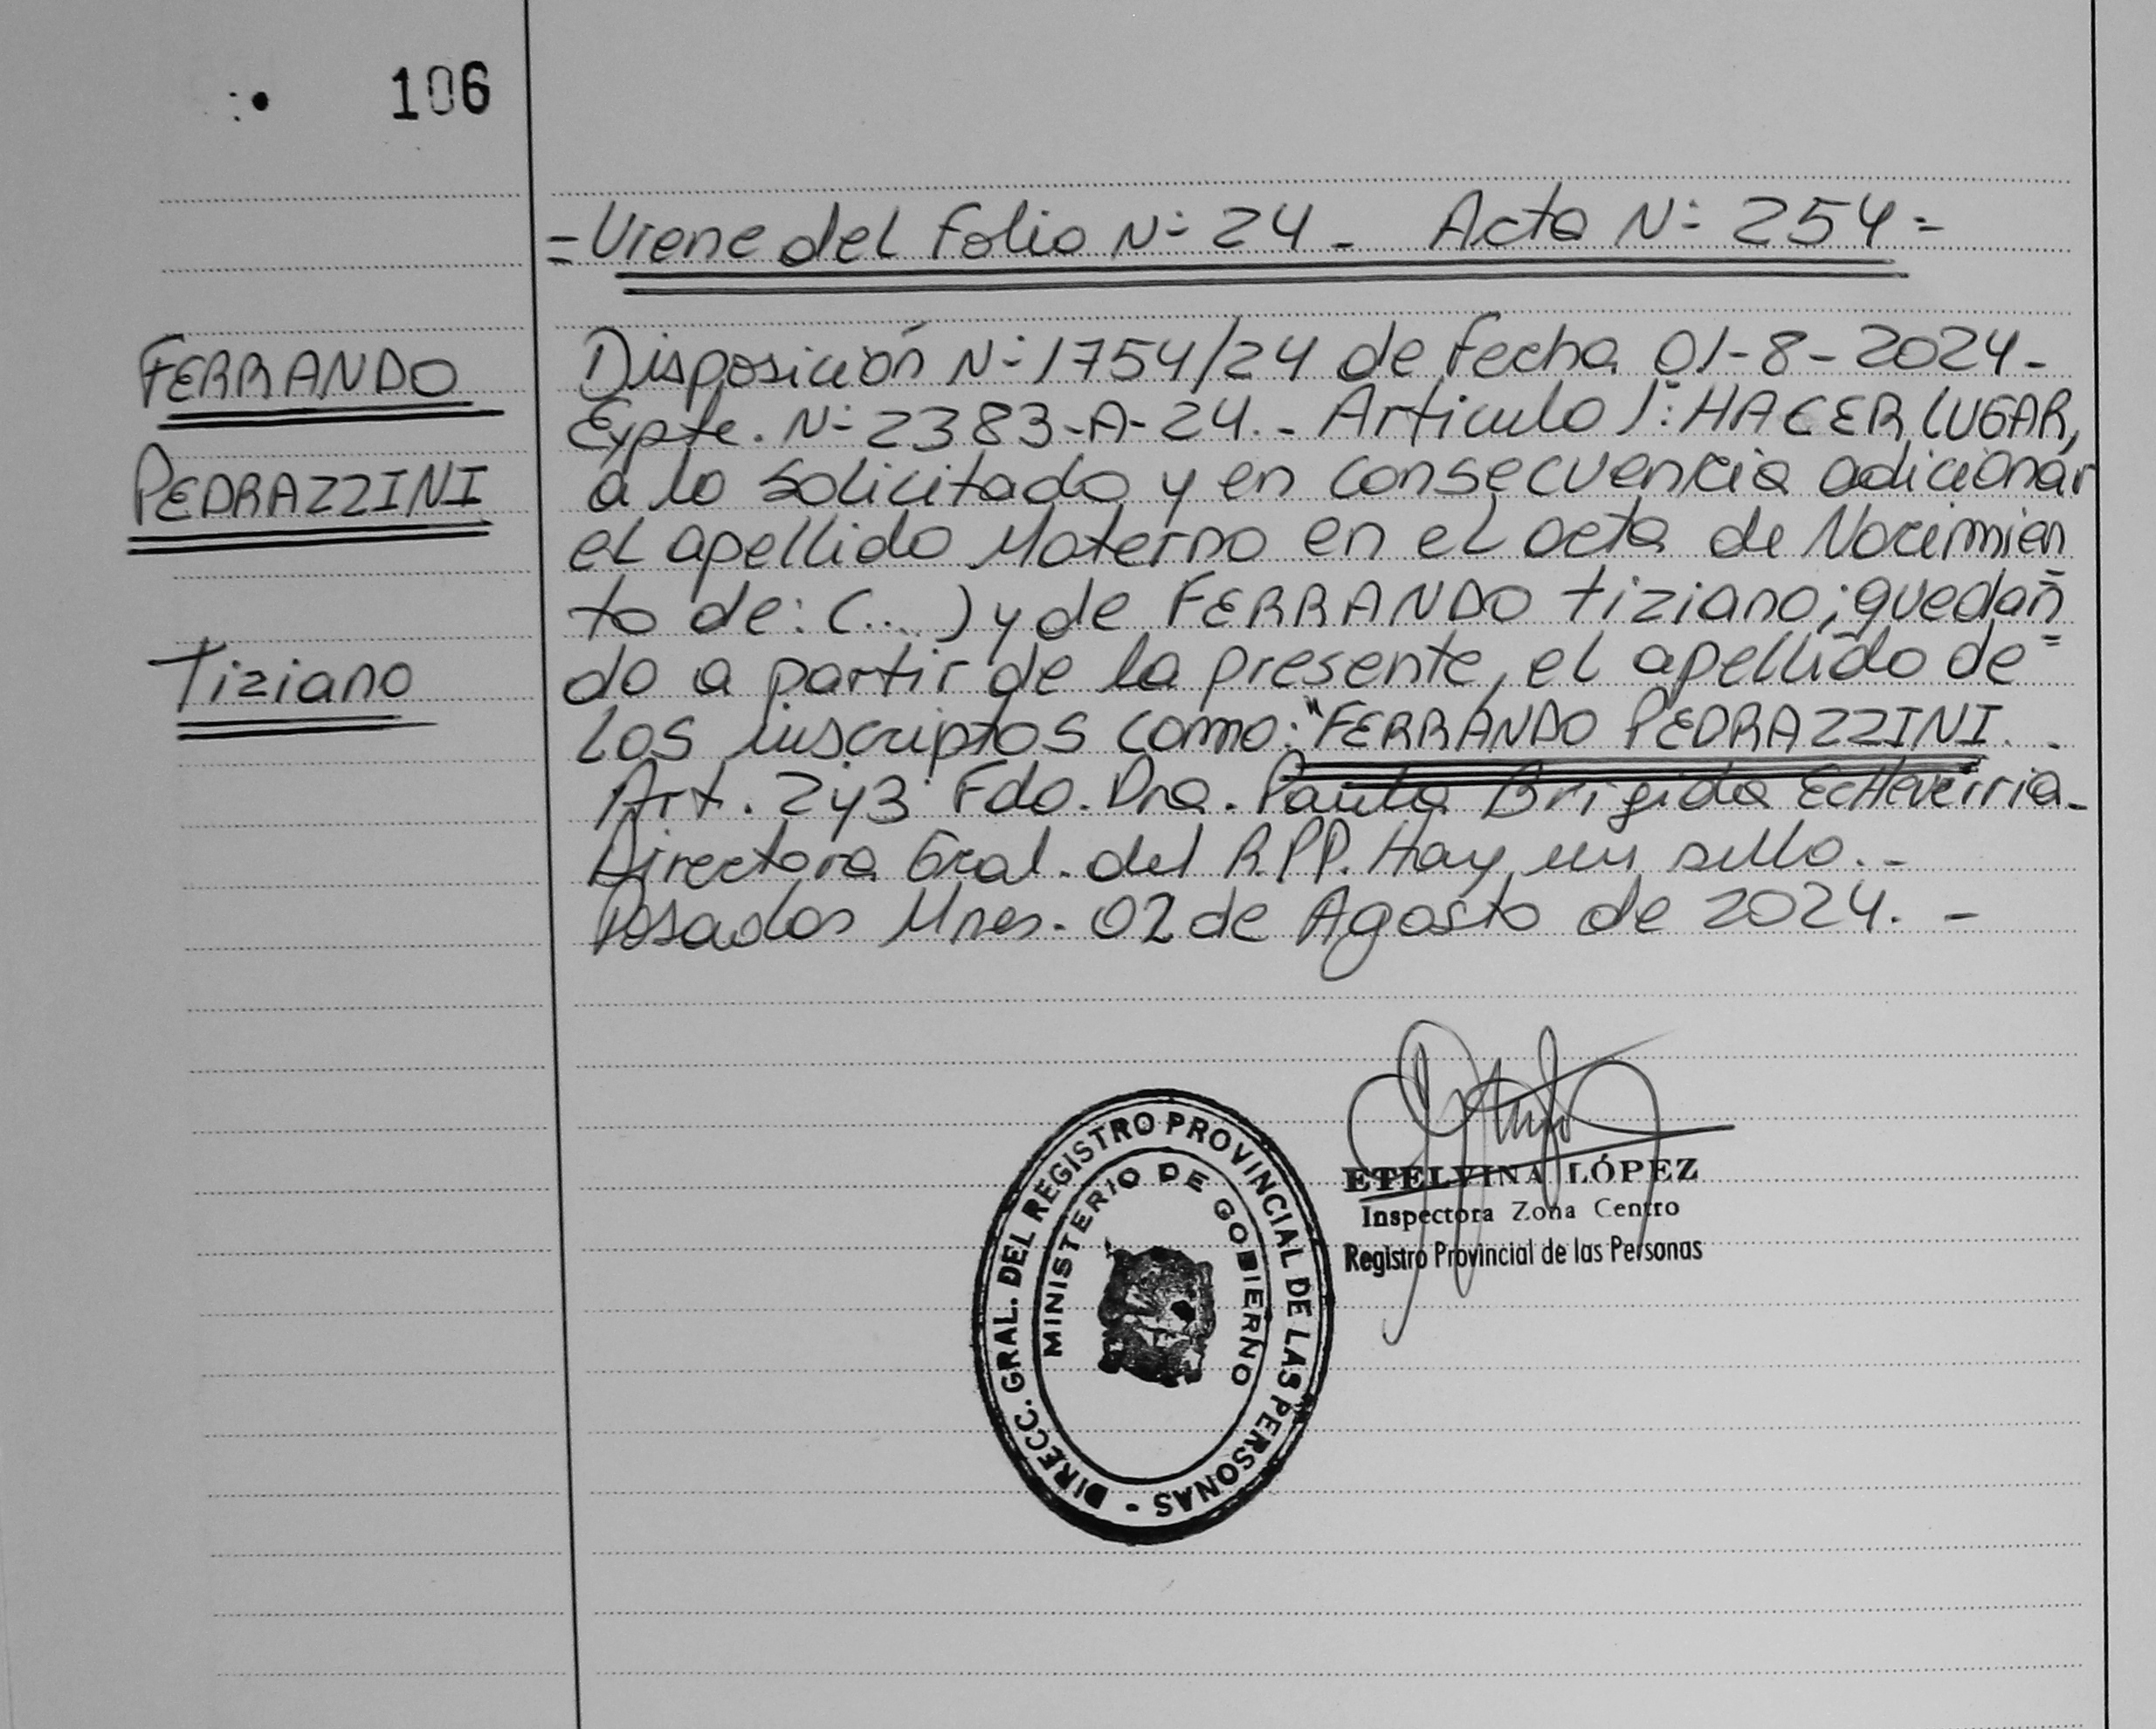 106
= Viene del folio N: 24 - Acta N: 254 =
FERRANDO
PEDRAZZINI
Tiziano
Disposición N: 1754/24 de fecha 01-8-2024-
Expte. N: 2383-A-24.- Articulo 1: HACER LUGAR,
a lo solicitado y en consecuencia adicionar
el apellido Materno en el acta de Nacimien
to de: (...) y de FERRANDO tiziano; quedan=
do a partir de la presente, el apellido de=
los inscriptos como: "FERRANDO PEDRAZZINI. -
Art. 2y3 Fdo. Dra. Paula Brigida Echeverria-
Directora Gral. del R.P.P. Hay un sello.-
Posadas Mnes. 02 de Agosto de 2024. -
ETELVINA LÓPEZ
Inspectora Zona Centro
Registro Provincial de las Personas
DIRECC. GRAL. DEL REGISTRO PROVINCIAL DE LAS PERSONAS -
MINISTERIO DE GOBIERNO